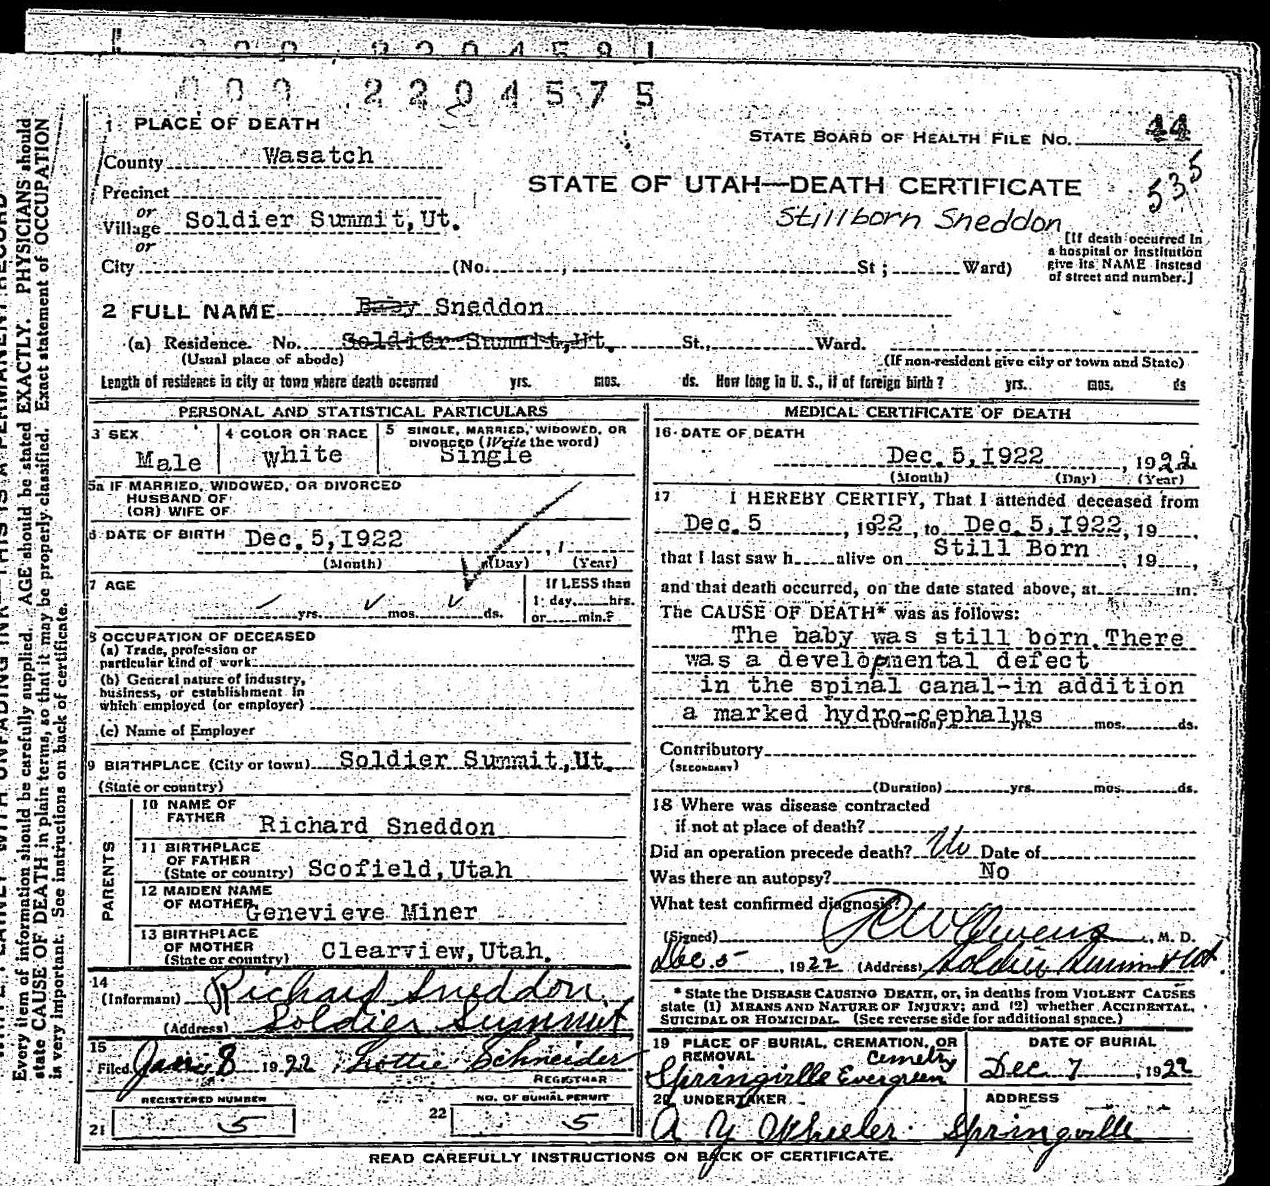 000 2204575
1 PLACE OF DEATH
STATE BOARD OF HEALTH FILE No. 44
County Wasatch
535
Precinct
STATE OF UTAH—DEATH CERTIFICATE
or
Village Soldier Summit, Ut.
Stillborn Sneddon
or
[If death occurred in
a hospital or institution
give its NAME instead
of street and number.]
City (No. , St ; Ward)
2 FULL NAME Baby Sneddon
(a) Residence. No. Soldier Summit, Ut. St., Ward.
(Usual place of abode) (If non-resident give city or town and State)
Length of residence in city or town where death occurred yrs. mos. ds. How long in U. S., if of foreign birth? yrs. mos. ds
PERSONAL AND STATISTICAL PARTICULARS
3 SEX
Male
4 COLOR OR RACE
White
5 SINGLE, MARRIED, WIDOWED, OR
DIVORCED (Write the word)
Single
5a IF MARRIED, WIDOWED, OR DIVORCED
HUSBAND OF
(OR) WIFE OF
6 DATE OF BIRTH Dec. 5, 1922
(Month) (Day) (Year)
7 AGE
yrs. mos. ds.
If LESS than
1 day, hrs.
or min.?
8 OCCUPATION OF DECEASED
(a) Trade, profession or
particular kind of work
(b) General nature of industry,
business, or establishment in
which employed (or employer)
(c) Name of Employer
9 BIRTHPLACE (City or town) Soldier Summit, Ut.
(State or country)
PARENTS
10 NAME OF
FATHER Richard Sneddon
11 BIRTHPLACE
OF FATHER
(State or country) Scofield, Utah
12 MAIDEN NAME
OF MOTHER Genevieve Miner
13 BIRTHPLACE
OF MOTHER
(State or country) Clearview, Utah.
14
(Informant) Richard Sneddon.
(Address) Soldier Summit
15
Filed Jan. 8 1922 Lottie Schneider
REGISTRAR
REGISTERED NUMBER
21 5
NO. OF BURIAL PERMIT
22 5
MEDICAL CERTIFICATE OF DEATH
16 DATE OF DEATH
Dec. 5, 1922 , 1922
(Month) (Day) (Year)
17 I HEREBY CERTIFY, That I attended deceased from
Dec. 5 , 1922 , to Dec. 5, 1922, 19 ,
that I last saw h alive on Still Born 19 ,
and that death occurred, on the date stated above, at m.
The CAUSE OF DEATH* was as follows:
The baby was still born. There
was a developmental defect
in the spinal canal-in addition
a marked hydro-cephalus
(Duration) yrs. mos. ds.
Contributory
(SECONDARY)
(Duration) yrs. mos. ds.
18 Where was disease contracted
if not at place of death?
Did an operation precede death? No Date of
Was there an autopsy? No
What test confirmed diagnosis?
(Signed) Owens , M. D.
Dec. 5 , 1922 (Address) Soldier Summit Ut.
* State the DISEASE CAUSING DEATH, or, in deaths from VIOLENT CAUSES
state (1) MEANS AND NATURE OF INJURY; and (2) whether ACCIDENTAL,
SUICIDAL OR HOMICIDAL. (See reverse side for additional space.)
19 PLACE OF BURIAL, CREMATION, OR
REMOVAL
Springville Evergreen
DATE OF BURIAL
Dec 7 , 1922
20 UNDERTAKER
A Y Wheeler.
ADDRESS
Springville
READ CAREFULLY INSTRUCTIONS ON BACK OF CERTIFICATE.
Every item of information should be carefully supplied. AGE should be stated EXACTLY. PHYSICIANS should
state CAUSE OF DEATH in plain terms, so that it may be properly classified. Exact statement of OCCUPATION
is very important. See instructions on back of certificate.